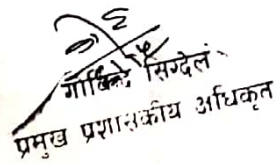 गोबिन्द सिग्देल
प्रमुख प्रशासकीय अधिकृत